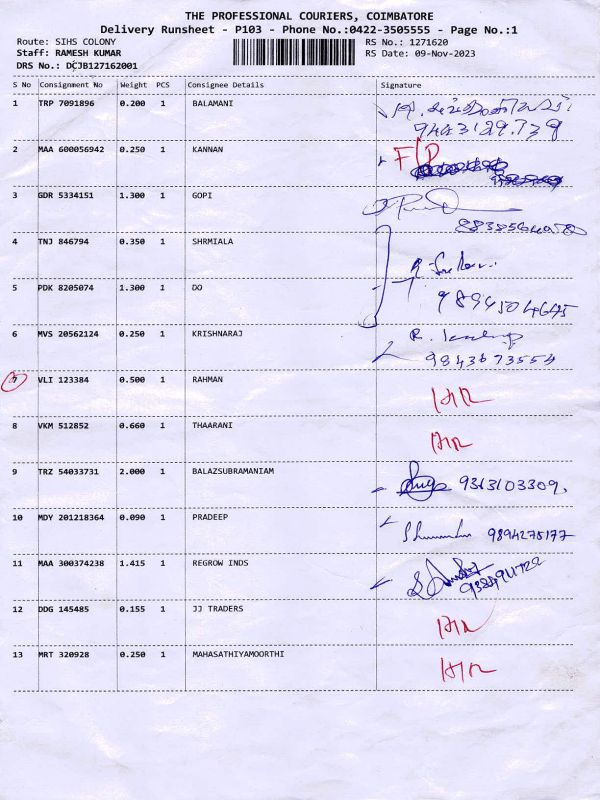 THE PROFESSIONAL COURIERS, COIMBATORE
Delivery Runsheet - P103 - Phone No.:0422-3505555 - Page No.:1
Route: SIHS COLONY RS No.: 1271620
Staff: RAMESH KUMAR RS Date: 09-Nov-2023
DRS No.: DCJB127162001
S No Consignment No Weight PCS Consignee Details Signature
1 TRP 7091896 0.200 1 BALAMANI
2 MAA 600056942 0.250 1 KANNAN
3 GDR 5334151 1.300 1 GOPI
4 TNJ 846794 0.350 1 SHRMIALA
5 PDK 8205074 1.300 1 DO
6 MVS 20562124 0.250 1 KRISHNARAJ
9843673554
7 VLI 123384 0.500 1 RAHMAN
8 VKM 512852 0.660 1 THAARANI
9 TRZ 54033731 2.000 1 BALAZSUBRAMANIAM 9363103309
10 MDY 201218364 0.090 1 PRADEEP 9894275177
11 MAA 300374238 1.415 1 REGROW INDS
12 DDG 145485 0.155 1 JJ TRADERS
13 MRT 320928 0.250 1 MAHASATHIYAMOORTHI